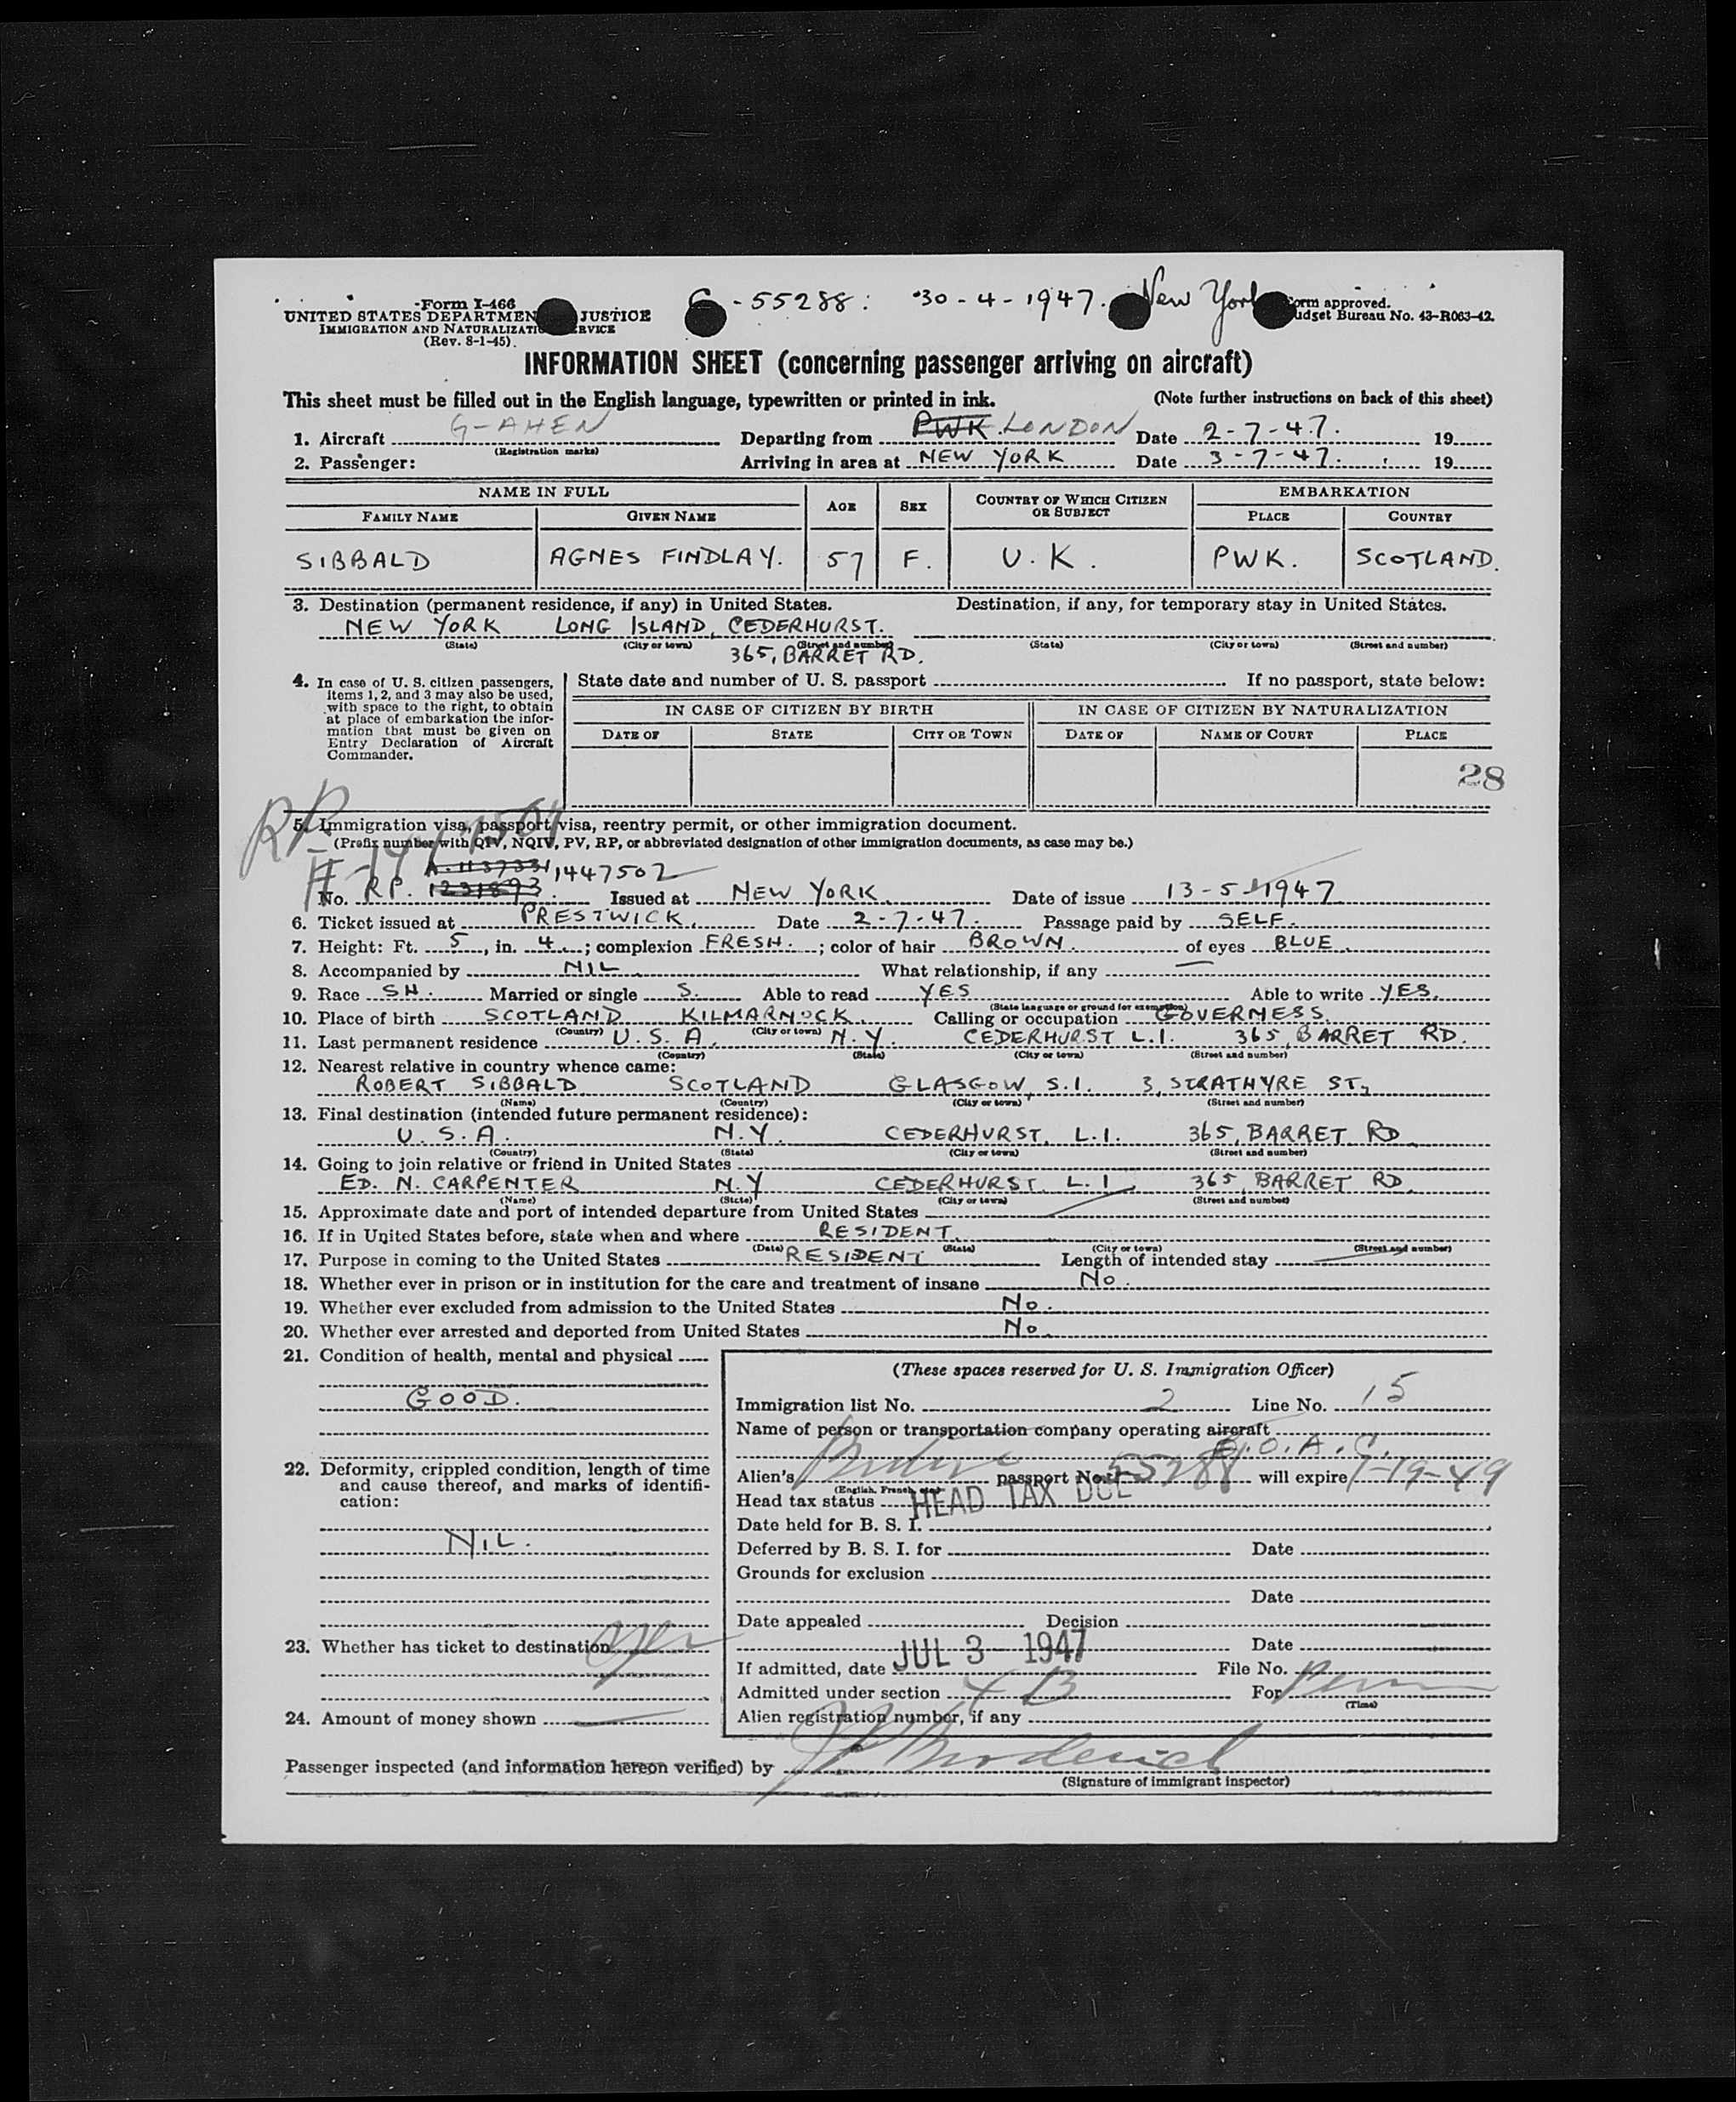 Form I-466
UNITED STATES DEPARTMEN JUSTICE
IMMIGRATION AND NATURALIZATI RVICE
(Rev. 8-1-45)
-55288: 30-4-1947. New York
orm approved.
udget Bureau No. 43-R063-42.
INFORMATION SHEET (concerning passenger arriving on aircraft)
This sheet must be filled out in the English language, typewritten or printed in ink. (Note further instructions on back of this sheet)
1. Aircraft G-AHEN Departing from PWK LONDON Date 2-7-47. 19
(Registration marks)
2. Passenger: Arriving in area at NEW YORK Date 3-7-47. 19
NAME IN FULL AGE SEX COUNTRY OF WHICH CITIZEN OR SUBJECT EMBARKATION
FAMILY NAME GIVEN NAME PLACE COUNTRY
SIBBALD AGNES FINDLAY. 57 F. U.K. PWK. SCOTLAND.
3. Destination (permanent residence, if any) in United States. Destination, if any, for temporary stay in United States.
NEW YORK LONG ISLAND, CEDERHURST.
(State) (City or town) (Street and number) (State) (City or town) (Street and number)
365, BARRET RD.
4. In case of U. S. citizen passengers, items 1, 2, and 3 may also be used, with space to the right, to obtain at place of embarkation the information that must be given on Entry Declaration of Aircraft Commander.
State date and number of U. S. passport If no passport, state below:
IN CASE OF CITIZEN BY BIRTH IN CASE OF CITIZEN BY NATURALIZATION
DATE OF STATE CITY OR TOWN DATE OF NAME OF COURT PLACE
28
RP
5. Immigration visa, passport visa, reentry permit, or other immigration document.
(Prefix number with QIV, NQIV, PV, RP, or abbreviated designation of other immigration documents, as case may be.)
A. 1137331 1447502
No. RP. 1231893 Issued at NEW YORK Date of issue 13-5-1947
6. Ticket issued at PRESTWICK. Date 2-7-47. Passage paid by SELF.
7. Height: Ft. 5, in. 4; complexion FRESH.; color of hair BROWN. of eyes BLUE.
8. Accompanied by NIL What relationship, if any —
9. Race SH. Married or single S. Able to read YES Able to write YES.
(State language or ground for exemption)
10. Place of birth SCOTLAND KILMARNOCK. Calling or occupation GOVERNESS.
(Country) (City or town)
11. Last permanent residence U.S.A. N.Y. CEDERHURST L.I. 365, BARRET RD.
(Country) (State) (City or town) (Street and number)
12. Nearest relative in country whence came:
ROBERT SIBBALD SCOTLAND GLASGOW, S.1. 3, STRATHYRE ST,
(Name) (Country) (City or town) (Street and number)
13. Final destination (intended future permanent residence):
U.S.A. N.Y. CEDERHURST, L.I. 365, BARRET RD
(Country) (State) (City or town) (Street and number)
14. Going to join relative or friend in United States
ED. N. CARPENTER N.Y CEDERHURST, L.I. 365, BARRET RD.
(Name) (State) (City or town) (Street and number)
15. Approximate date and port of intended departure from United States
16. If in United States before, state when and where RESIDENT.
(Date) (State) (City or town) (Street and number)
17. Purpose in coming to the United States RESIDENT Length of intended stay
18. Whether ever in prison or in institution for the care and treatment of insane No.
19. Whether ever excluded from admission to the United States No.
20. Whether ever arrested and deported from United States No.
21. Condition of health, mental and physical
GOOD.
22. Deformity, crippled condition, length of time and cause thereof, and marks of identification:
NIL.
23. Whether has ticket to destination
24. Amount of money shown —
(These spaces reserved for U. S. Immigration Officer)
Immigration list No. 2 Line No. 15
Name of person or transportation company operating aircraft
B.O.A.C.
Alien's passport No. 55288 will expire 1-19-49
(English, French, etc.)
Head tax status HEAD TAX DUE
Date held for B. S. I.
Deferred by B. S. I. for Date
Grounds for exclusion
Date
Date appealed Decision
Date
If admitted, date JUL 3 1947 File No.
Admitted under section 4 B For Perm
(Time)
Alien registration number, if any
Passenger inspected (and information hereon verified) by
(Signature of immigrant inspector)